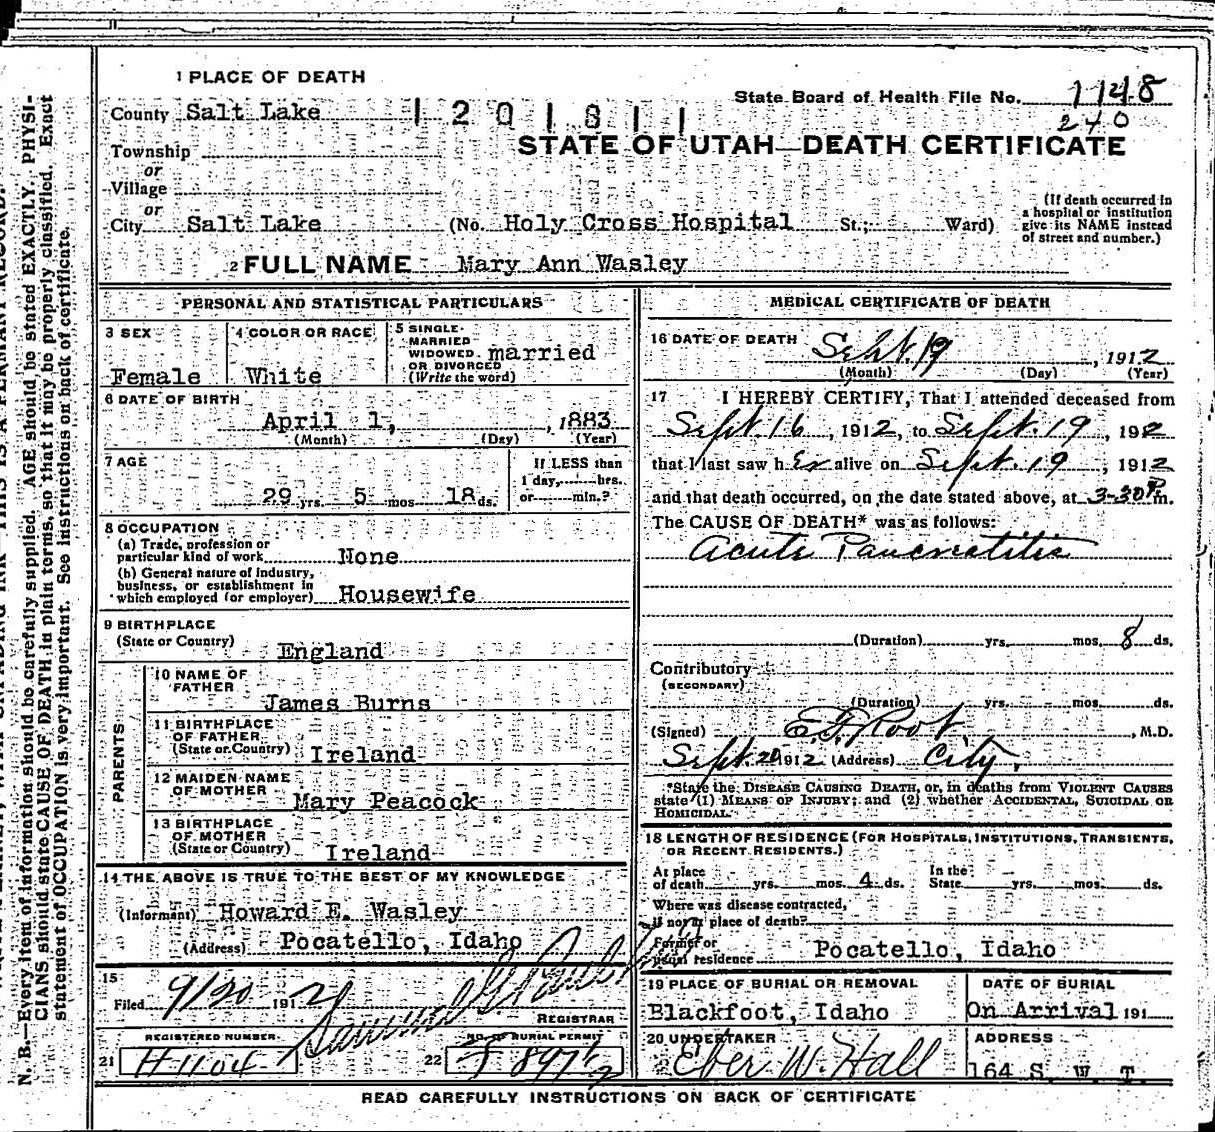 1 PLACE OF DEATH
County Salt Lake
1201811
State Board of Health File No. 1148
240
STATE OF UTAH—DEATH CERTIFICATE
Township
or
Village
or
City Salt Lake (No. Holy Cross Hospital St.; Ward)
(If death occurred in a hospital or institution give its NAME instead of street and number.)
2 FULL NAME Mary Ann Wasley
PERSONAL AND STATISTICAL PARTICULARS
3 SEX
Female
4 COLOR OR RACE
White
5 SINGLE
MARRIED
WIDOWED
OR DIVORCED
(Write the word)
married
6 DATE OF BIRTH
April 1, 1883
(Month) (Day) (Year)
7 AGE
29 yrs. 5 mos 18 ds.
If LESS than
1 day, hrs.
or min.?
8 OCCUPATION
(a) Trade, profession or
particular kind of work None
(b) General nature of industry,
business, or establishment in
which employed (or employer) Housewife
9 BIRTHPLACE
(State or Country) England
PARENTS
10 NAME OF
FATHER
James Burns
11 BIRTHPLACE
OF FATHER
(State or Country) Ireland
12 MAIDEN NAME
OF MOTHER
Mary Peacock
13 BIRTHPLACE
OF MOTHER
(State or Country) Ireland
14 THE ABOVE IS TRUE TO THE BEST OF MY KNOWLEDGE
(Informant) Howard E. Wasley
(Address) Pocatello, Idaho
15
Filed 9/20 1912
REGISTRAR
REGISTERED NUMBER
21 H1104
NO. OF BURIAL PERMIT
22
MEDICAL CERTIFICATE OF DEATH
16 DATE OF DEATH
Sept. 19, 1912
(Month) (Day) (Year)
17 I HEREBY CERTIFY, That I attended deceased from
Sept. 16, 1912, to Sept. 19, 1912
that I last saw her alive on Sept. 19, 1912
and that death occurred, on the date stated above, at 3-30 P.m.
The CAUSE OF DEATH* was as follows:
Acute Pancreatitis
(Duration) yrs. mos. 8 ds.
Contributory
(SECONDARY)
(Duration) yrs. mos. ds.
(Signed) E.F. Root, M.D.
Sept. 20 1912 (Address) City.
*State the DISEASE CAUSING DEATH, or, in deaths from VIOLENT CAUSES
state (1) MEANS OF INJURY; and (2) whether ACCIDENTAL, SUICIDAL OR
HOMICIDAL.
18 LENGTH OF RESIDENCE (FOR HOSPITALS, INSTITUTIONS, TRANSIENTS,
OR RECENT RESIDENTS.)
At place
of death yrs. mos. 4 ds.
In the
State yrs. mos. ds.
Where was disease contracted,
if not in place of death?
Former or
usual residence Pocatello, Idaho
19 PLACE OF BURIAL OR REMOVAL
Blackfoot, Idaho
DATE OF BURIAL
On Arrival 191
20 UNDERTAKER
Eber W. Hall
ADDRESS
164 S. W. T.
READ CAREFULLY INSTRUCTIONS ON BACK OF CERTIFICATE
N. B.—Every item of information should be carefully supplied. AGE should be stated EXACTLY. PHYSI-
CIANS should state CAUSE OF DEATH in plain terms, so that it may be properly classified. Exact
statement of OCCUPATION is very important. See instructions on back of certificate.